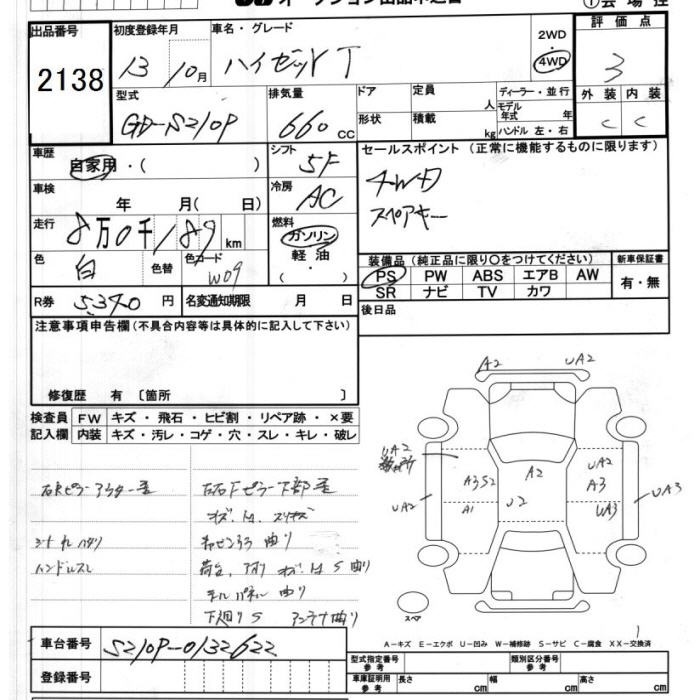 オークション出品申込書
① 会 場 控
出品番号 2138
初度登録年月 13 10月
車名・グレード ハイゼット T
2WD ・ 4WD
評 価 点 3
外 装 C 内 装 C
型式 GD-S210P
排気量 660 cc
ドア
形状
定員 人
積載 kg
ディーラー・並 行
モデル年式 年
ハンドル 左・右
車歴 自家用・( )
シフト 5F
セールスポイント (正常に機能するものに限ります)
4WD
スペアキー
車検 年 月( 日)
冷房 AC
走行 8万0千189 km
燃料 ガソリン ・ 軽 油 ・ ( )
色 白 色替 色コード W09
装備品 (純正品に限り〇をつけてください) 新車保証書
PS PW ABS エアB AW 有・無
SR ナビ TV カワ
R券 5370 円 名変通知期限 月 日
後日品
注意事項申告欄 (不具合内容等は具体的に記入して下さい)
修復歴 有 〔箇所 〕
検査員記入欄 FW キズ ・ 飛石 ・ ヒビ割 ・ リペア跡 ・ ×要
内装 キズ・汚レ・コゲ・穴・スレ・キレ・破レ
右Rピラーアウター歪
左右Fピラー下部歪
キズ. H. スリキズ
シートカバリ
キャビンうろ 曲り
ハンドルスレ
荷台. アオリ キズ. H S 曲り
テールパネル 曲り
下廻り S アンテナ曲り
A2 UA2
UA2
A3S2 A2 UA2
A3
UA2 A1 U2 UA3 UA3
スペア
A-キズ E-エクボ U-凹み W-補修跡 S-サビ C-腐食 XX-交換済
車台番号 S210P-0132622
登録番号
型式指定番号 参考 類別区分番号 参考
車庫証明用 参考 長さ cm 幅 cm 高さ cm